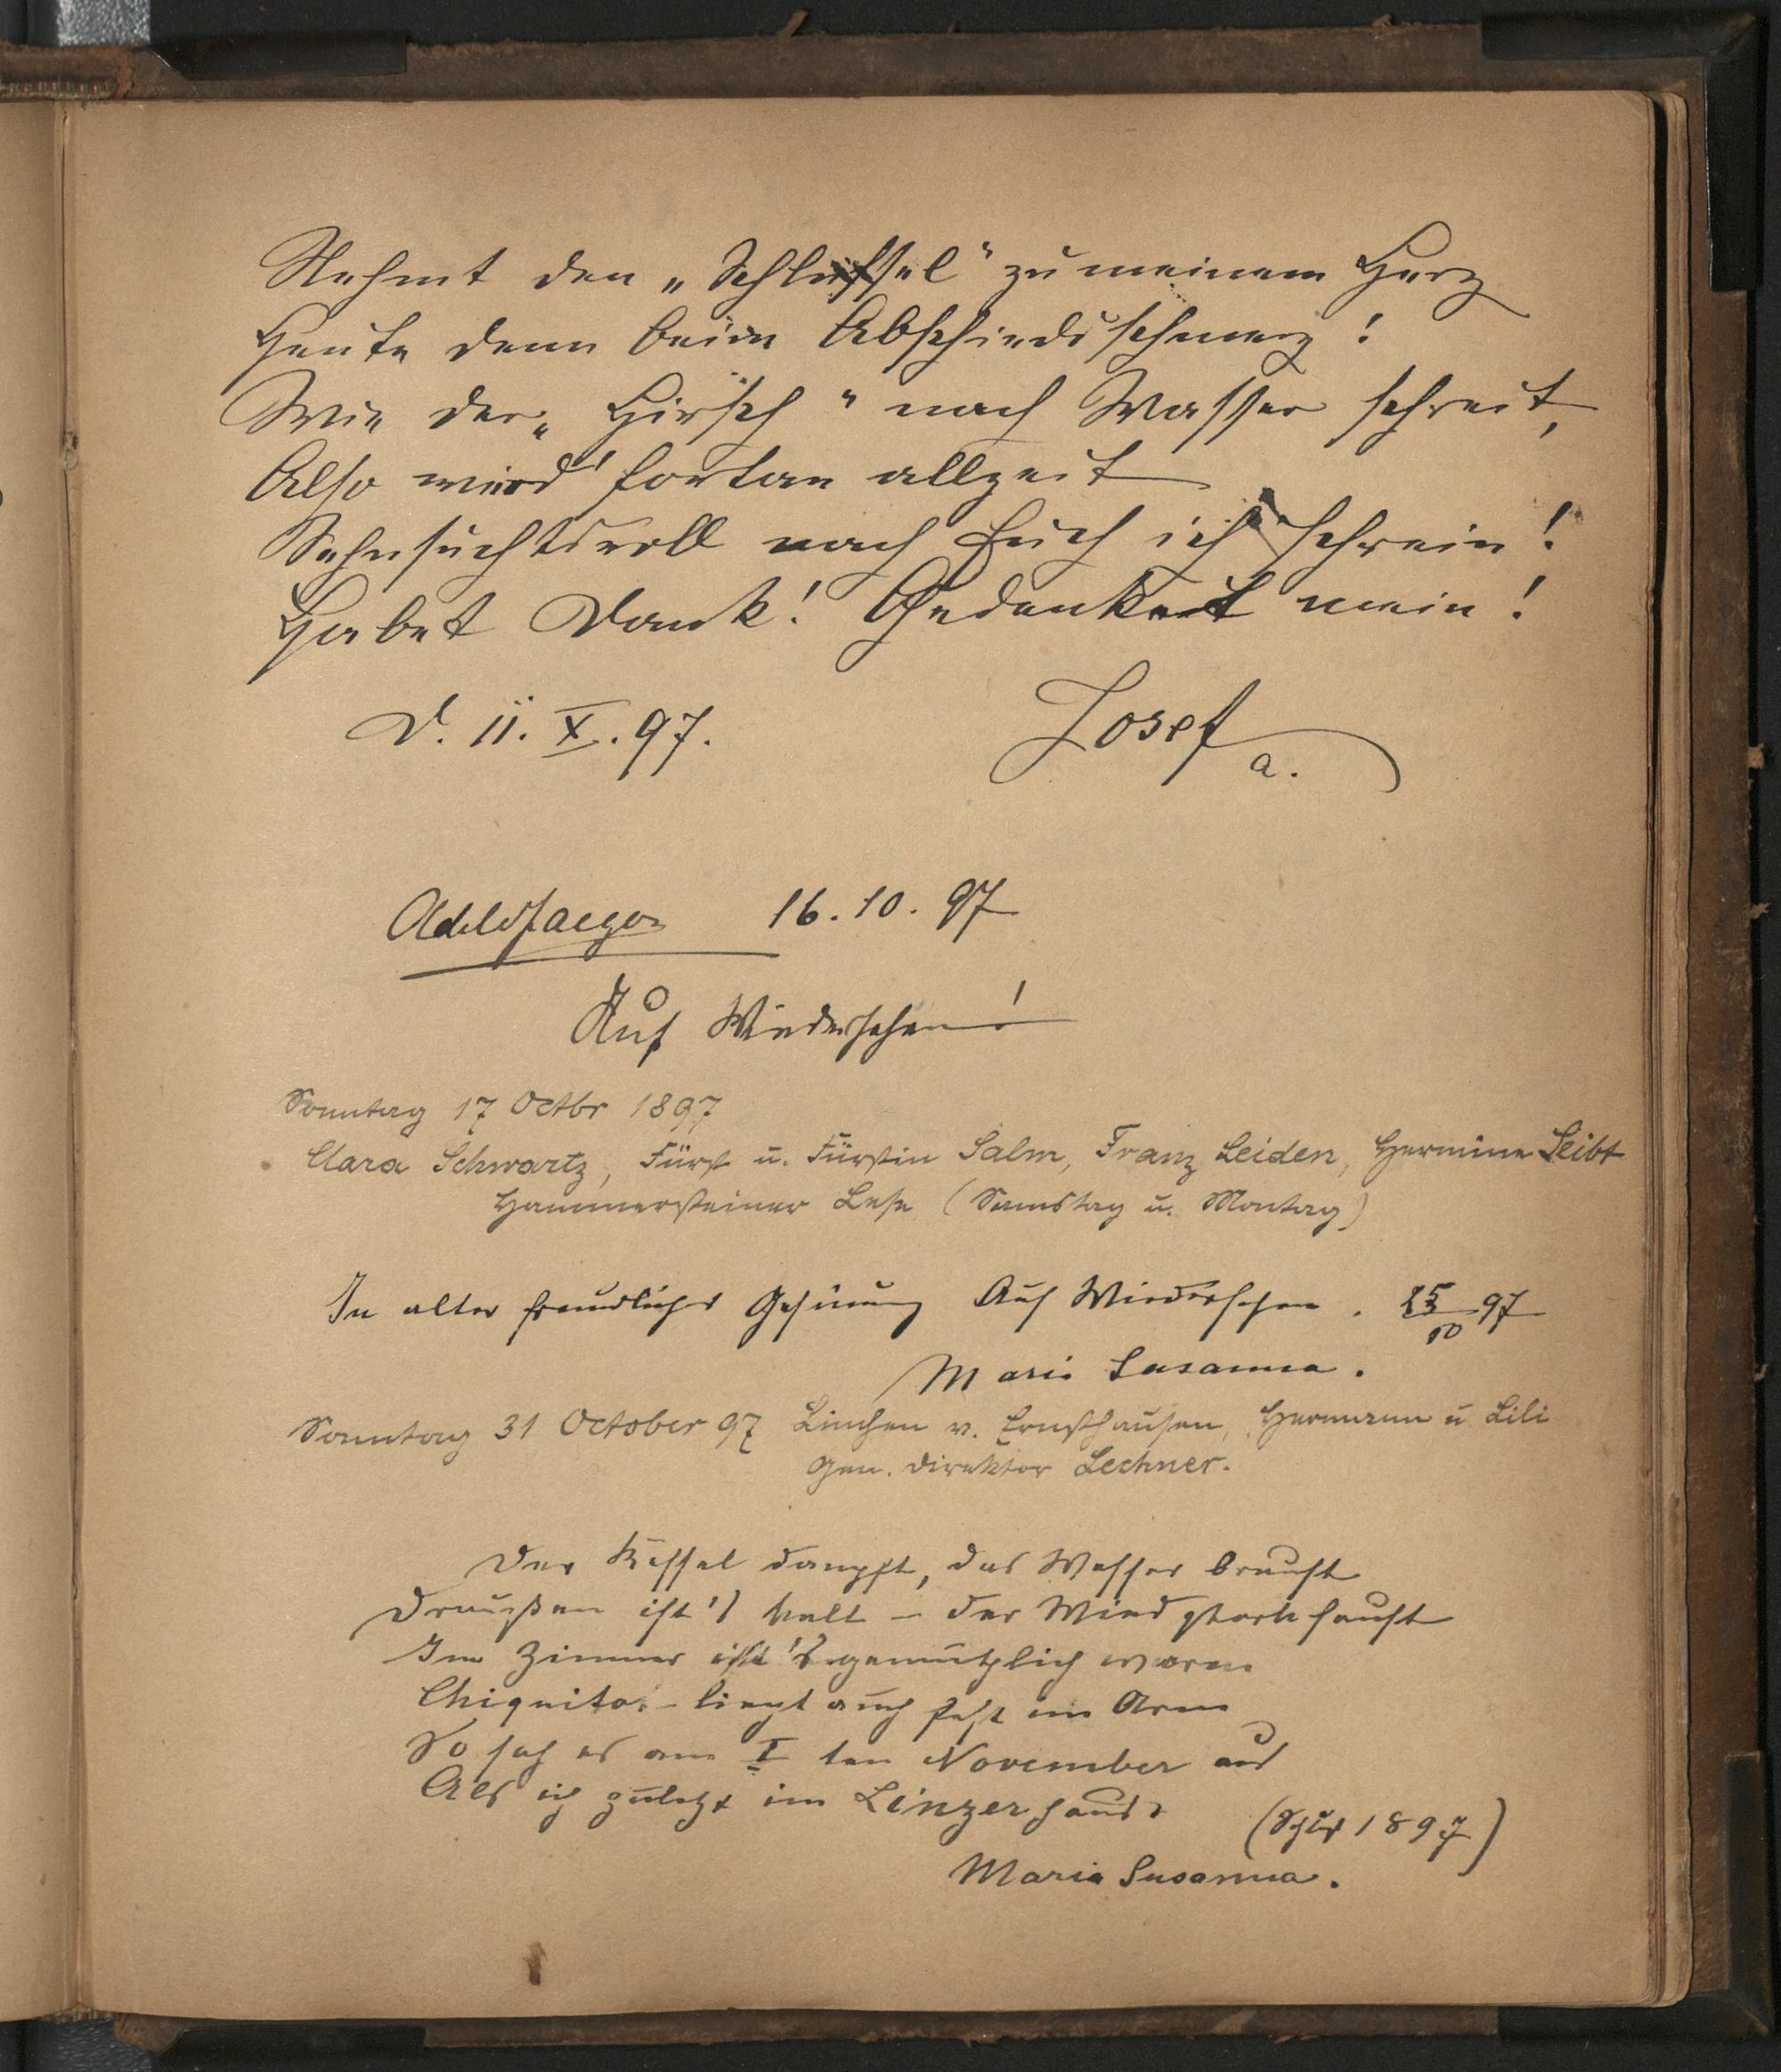 Nehmt den „Schlüssel“ zu meinem Herz
Heute denn beim Abschiedsschmerz!
Wie der „Hirsch“ nach Wasser schreit,
Also wird' fortan allzeit
Sehnsuchtsvoll nach Euch ich schrein!
Habet Dank! Gedenket mein!
D. 11. X. 97.
Josef
a.
16. 10. 97
Auf Wiedersehen!
Sonntag 17 Octbr 1897
Clara Schwartz, Fürst u. Fürstin Salm, Franz Leiden, Hermine Seibt
Hammersteiner Lese (Samstag u. Montag)
In alter freundlicher Gesinnung Auf Wiedersehen. 25/10 97
Marie Susanna.
Sonntag 31 October 97 Linchen v. Ernsthausen, Hermann u Lili
Gen. Direktor Lechner.
Der Kessel dampft, das Wasser braust
Draußen ist's kalt – der Wind stark saust
Im Zimmer ist's gemütlich warm
Chiquita – liegt auch fest im Arm
So sah es am I ten November aus
Als ich zuletzt im Linzerhaus
(Schluß 1897)
Maria Susanna.